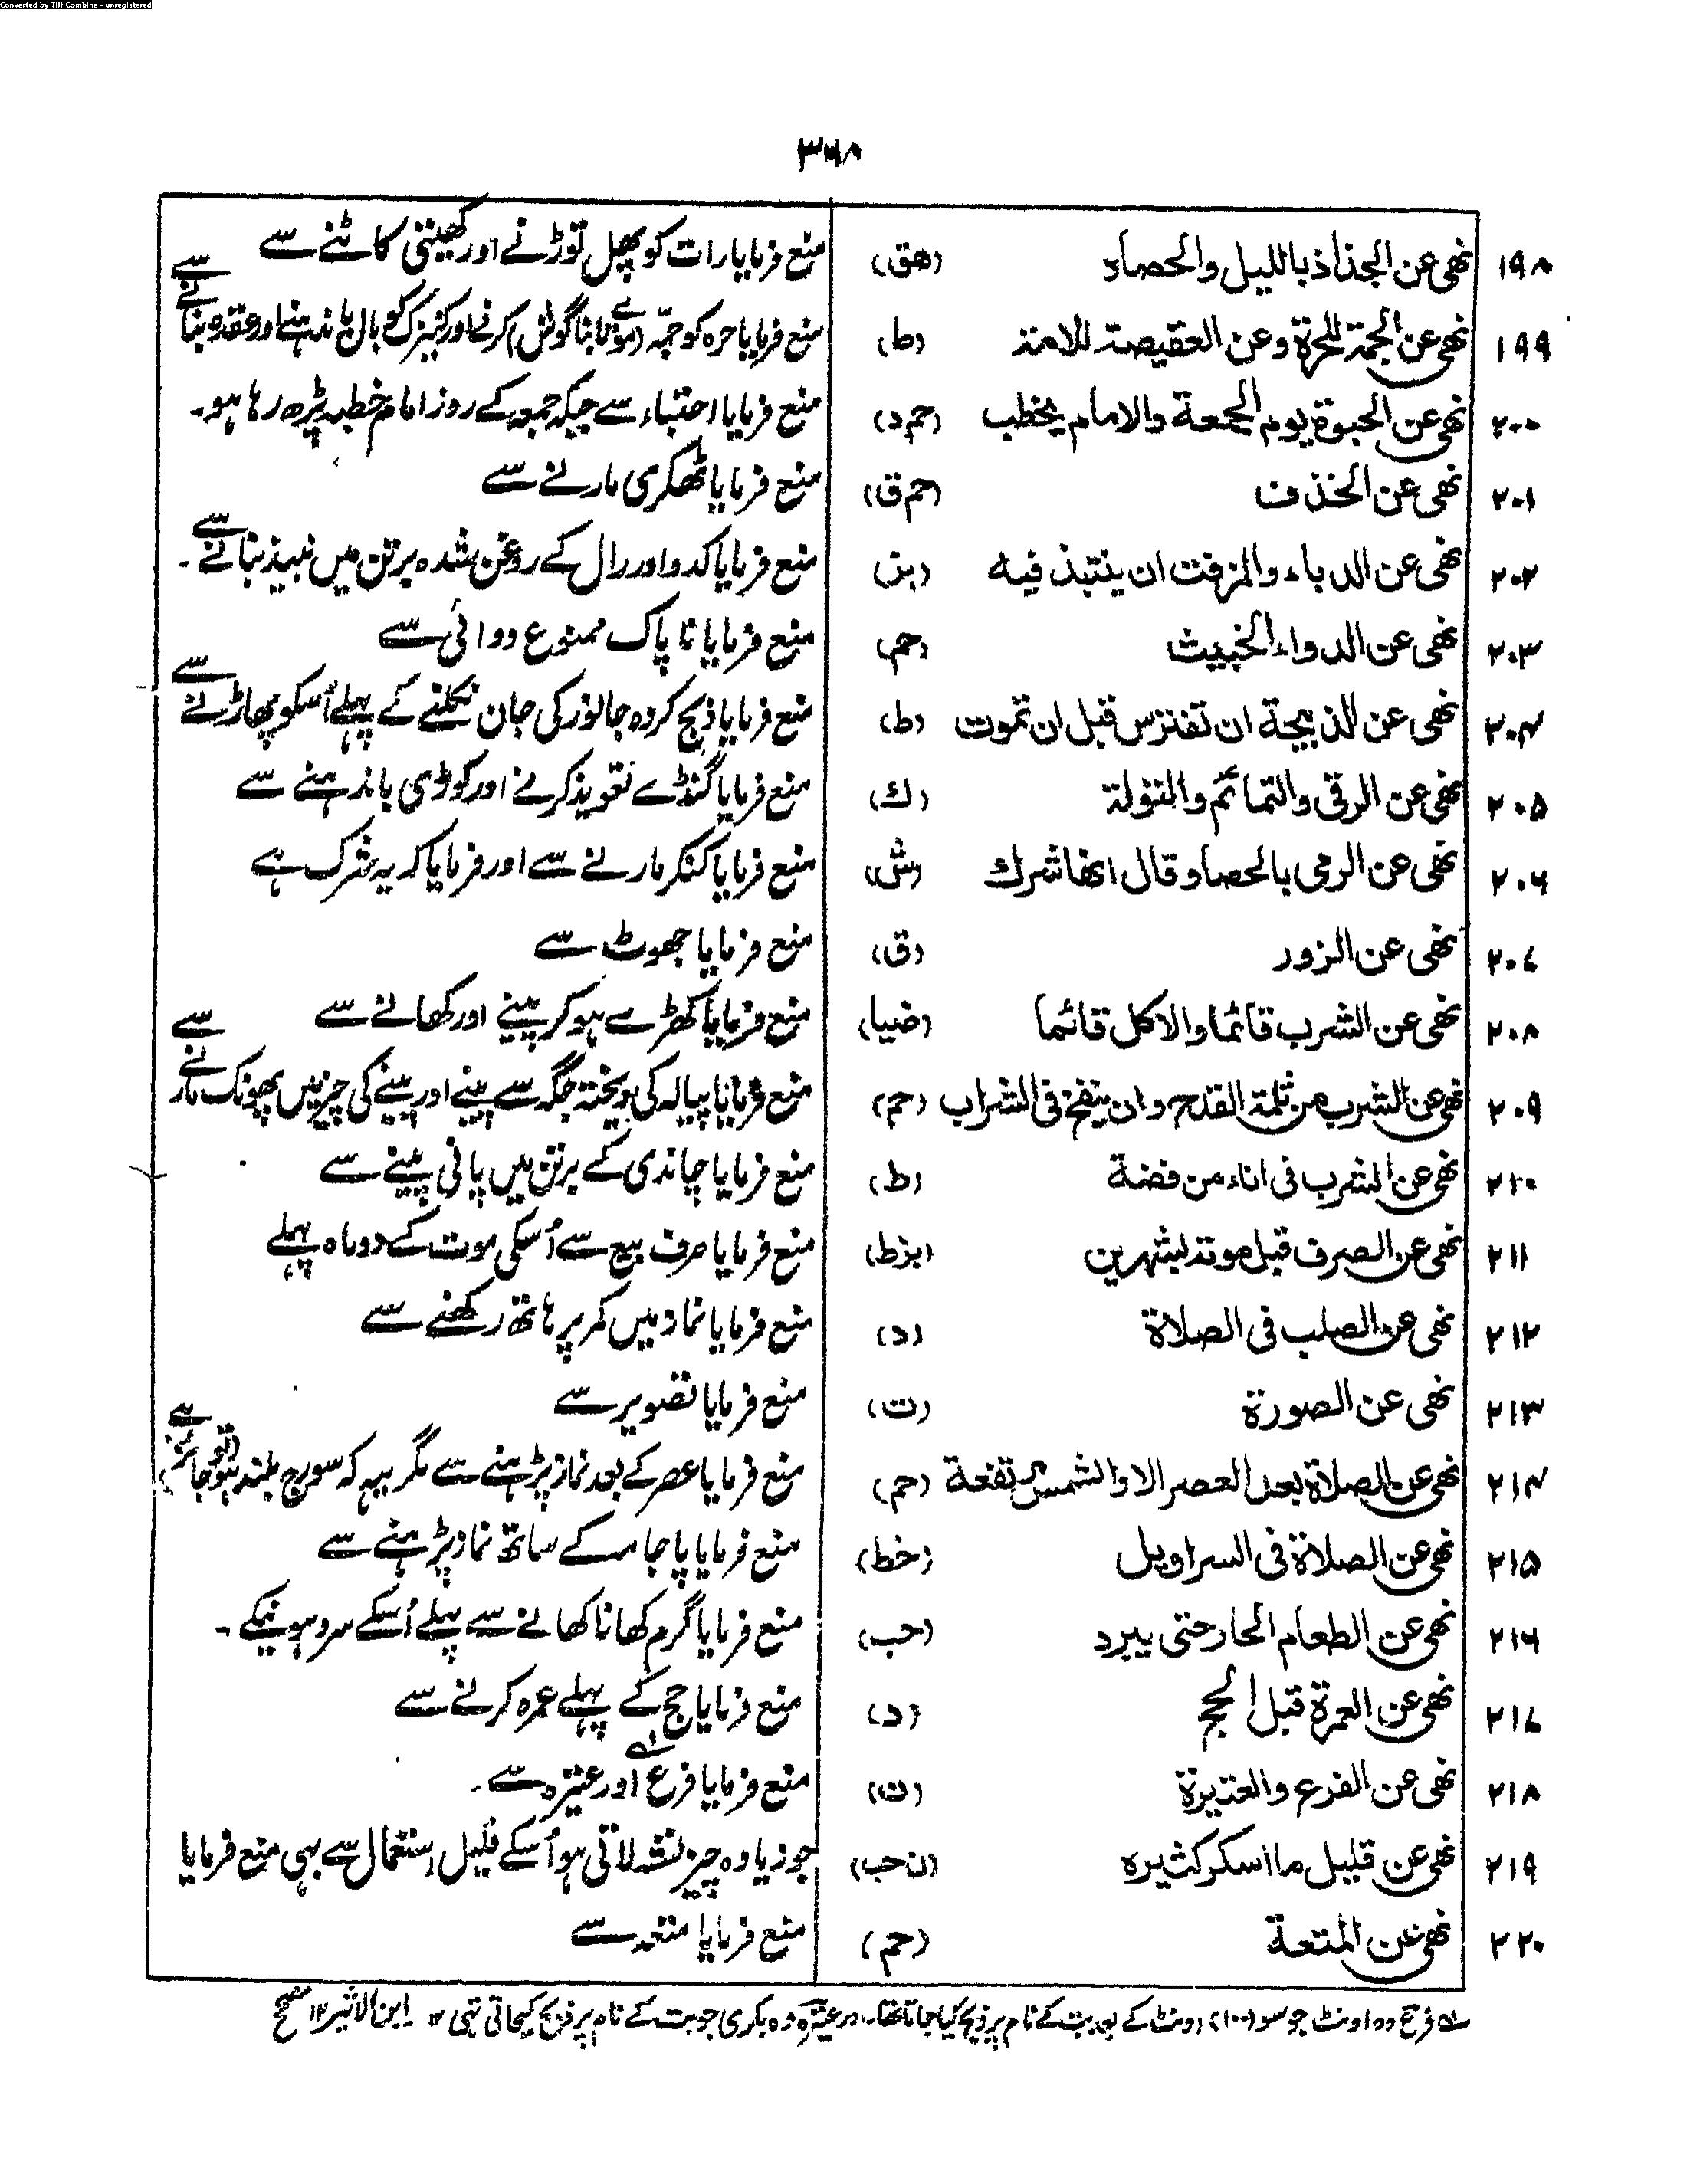 Converted by Tiff Combine - unregistered
۳۶۸
۱۹۸ نھی عن الجذاذ بالليل والحصاد (هق) منع فرمایا رات کو پھل توڑنے اور کھیتی کاٹنے سے
۱۹۹ نھی عن الجمة للحرة وعن العقيصة للامة (ط) منع فرمایا حرہ کو جمہ (موئے تا بنا گوش) کرنے اور کنیزک کو بال باندہنے اور عقدہ بنانے سے
۲۰۰ نھی عن الحبوة يوم الجمعة والامام يخطب (حم د) منع فرمایا احتباء سے جبکہ جمعہ کے روز امام خطبہ پڑھ رہا ہو۔
۲۰۱ نھی عن الخذف (حم ق) منع فرمایا ٹھکری مارنے سے
۲۰۲ نھی عن الدباء والمزفت ان ينتبذ فيه (بز) منع فرمایا کدو اور رال کے روغن شدہ برتن میں نبیذ بنانے سے۔
۲۰۳ نھی عن الدواء الخبيث (حم) منع فرمایا ناپاک ممنوع دوائی سے
۲۰۴ نھی عن الذبيحة ان تفترس قبل ان تموت (ط) منع فرمایا ذبح کردہ جانور کی جان نکلنے کے پہلے اُسکو پھاڑنے سے
۲۰۵ نھی عن الرقى والتمائم والتولة (ك) منع فرمایا گنڈے تعویذ کرنے اور کوڑی باندہنے سے
۲۰۶ نھی عن الرمى بالحصا وقال انها شرك (ش) منع فرمایا کنکر مارنے سے اور فرمایا کہ یہ شرک ہے
۲۰۷ نھی عن الزور (ق) منع فرمایا جھوٹ سے
۲۰۸ نھی عن الشرب قائما والاكل قائما (ضيا) منع فرمایا کھڑے ہو کر پینے اور کھانے سے
۲۰۹ نھی عن الشرب من ثلمة القدح وان ينفخ فى الشراب (حم) منع فرمایا پیالہ کی ریختہ جگہ سے پینے اور پینے کی چیز میں پھونک مارنے سے
۲۱۰ نھی عن الشرب فى اناء من فضة (ط) منع فرمایا چاندی کے برتن میں پانی پینے سے
۲۱۱ نھی عن الصرف قبل موته بشهرين (بزط) منع فرمایا صرف بیع سے اُسکی موت کے دو ماہ پہلے
۲۱۲ نھی عن الصلب فى الصلاة (د) منع فرمایا نماز میں کمر پر ہاتھ رکھنے سے
۲۱۳ نھی عن الصورة (ت) منع فرمایا تصویر سے
۲۱۴ نھی عن الصلاة بعد العصر الا والشمس مرتفعة (حم) منع فرمایا عصر کے بعد نماز پڑہنے سے مگر یہہ کہ سورج بلند ہو (تو جائز ہے)
۲۱۵ نھی عن الصلاة فى السراويل (خط) منع فرمایا پاجامہ کے ساتھ نماز پڑہنے سے
۲۱۶ نھی عن الطعام الحار حتى يبرد (حب) منع فرمایا گرم کھانا کھانے سے پہلے اُسکے سرد ہونیکے۔
۲۱۷ نھی عن العمرة قبل الحج (د) منع فرمایا حج کے پہلے عمرہ کرنے سے
۲۱۸ نھی عن الفرع والعتيرة (ن) منع فرمایا فرع اور عتیرہ سے۔
۲۱۹ نھی عن قليل ما اسكر كثيره (ن حب) جو زیادہ چیز نشہ لاتی ہو اُسکے قلیل استعمال سے بہی منع فرمایا
۲۲۰ نھی عن المتعة (حم) منع فرمایا متعہ سے
فرع وہ اونٹ جو سو (۱۰۰) اونٹ کے بعد بت کے نام پر ذبح کیا جاتا تھا۔ اور عتیرہ وہ بکری جو بت کے نام پر ذبح کیجاتی تہی ابن الاثیر ۱۲ مصحح